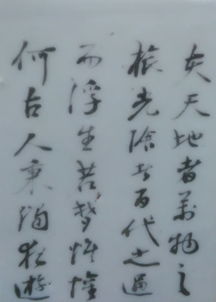 夫天地者萬物之
旅光陰者百代之過
而浮生若夢懽
何古人秉燭夜遊